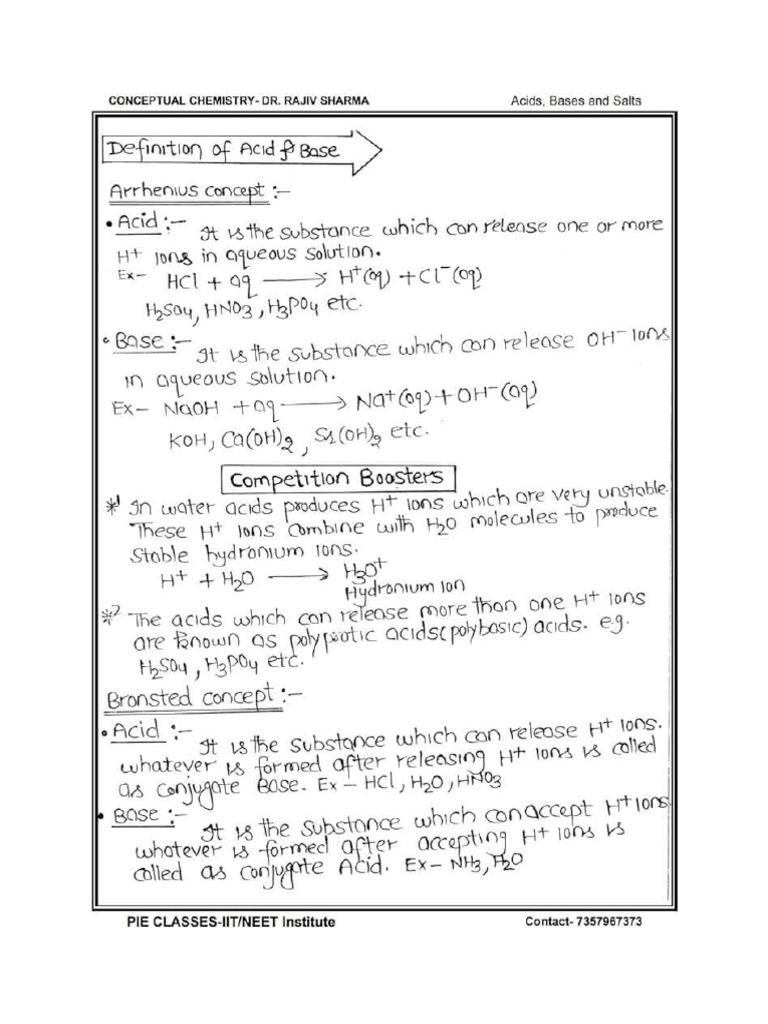 CONCEPTUAL CHEMISTRY- DR. RAJIV SHARMA Acids, Bases and Salts
Definition of Acid & Base
Arrhenius concept :-
• Acid :- It is the substance which can release one or more
H⁺ ions in aqueous solution.
Ex- HCl + aq ⟶ H⁺(aq) + Cl⁻(aq)
H₂SO₄, HNO₃, H₃PO₄ etc.
• Base :- It is the substance which can release OH⁻ ions
in aqueous solution.
Ex- NaOH + aq ⟶ Na⁺(aq) + OH⁻(aq)
KOH, Ca(OH)₂, Sr(OH)₂ etc.
Competition Boosters
*1 In water acids produces H⁺ ions which are very unstable.
These H⁺ ions combine with H₂O molecules to produce
stable hydronium ions.
H⁺ + H₂O ⟶ H₃O⁺
Hydronium ion
*2 The acids which can release more than one H⁺ ions
are known as polyprotic acids(polybasic) acids. e.g.
H₂SO₄, H₃PO₄ etc.
Bronsted concept :-
• Acid :- It is the substance which can release H⁺ ions.
whatever is formed after releasing H⁺ ions is called
as conjugate Base. Ex- HCl, H₂O, HNO₃
• Base :- It is the substance which can accept H⁺ ions
whatever is formed after accepting H⁺ ions is
called as conjugate Acid. Ex- NH₃, H₂O
PIE CLASSES-IIT/NEET Institute Contact- 7357967373